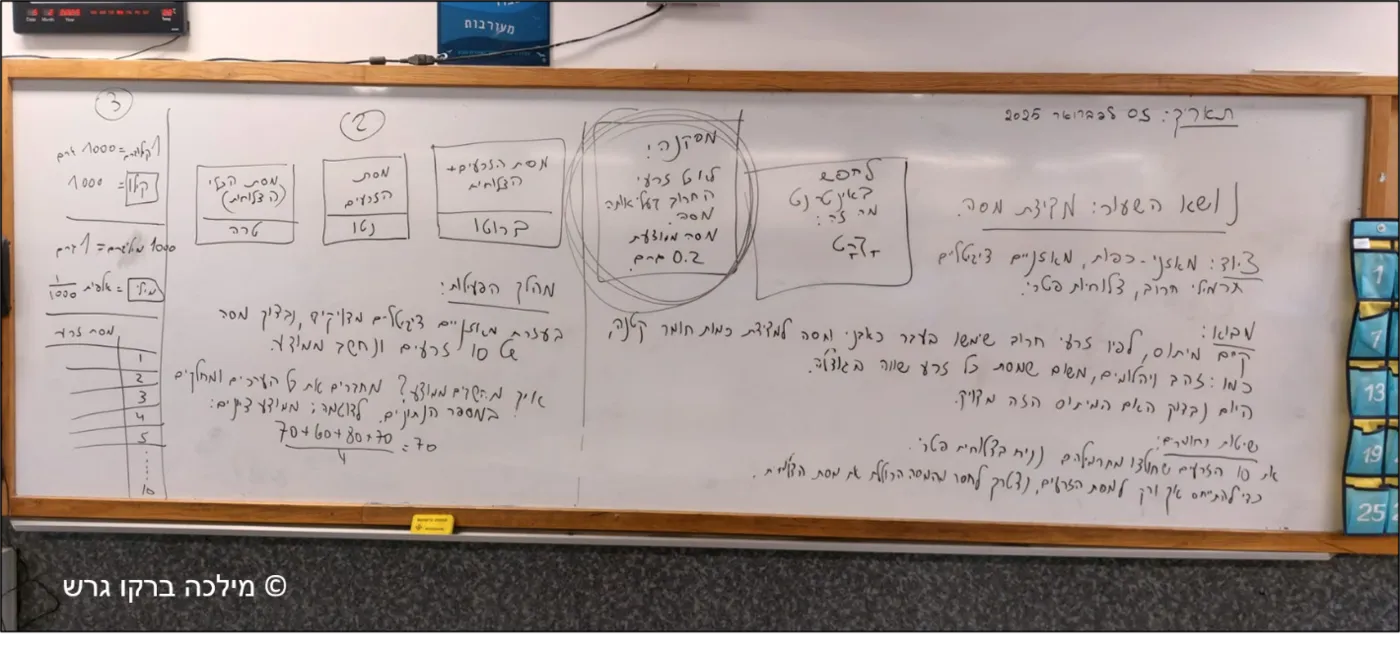 Date Month Year Temp
מעורבות
תאריך: 05 לפברואר 2025
נושא השעור: מדידת מסה.
ציוד: מאזני-כפות, מאזניים דיגטלים
תרמילי חרוב, צלוחית פטרי.
מבוא:
קיים מיתוס, לפיו זרעי חרוב שימשו בעבר כאבני מסה למדידת כמות חומר קטנה,
כמו: זהב ויהלומים, משום שמסת כל זרע שווה בגודלה.
היום נבדוק האם המיתוס הזה מדויק.
שיטות וחומרים:
את 10 הזרעים שחולצו מתרמילהם נניח בצלוחית פטרי.
כדי להתייחס אך ורק למסת הזרעים, נצטרך לחסר מהמסה הכוללת את מסת הצלוחית.
לחפש
באינטרנט
מה זה:
קרט
מסקנה:
לא כל זרעי
החרוב בעלי אותה
מסה.
מסה ממוצעת
0.2 גרם.
2
מסת הזרעים+
הצלוחית
ברוטו
מסת
הזרעים
נטו
מסת הכלי
(הצלוחית)
טרה
מהלך הפעילות:
בעזרת מאזניים דיגטלים מדויקים, נבדוק מסה
של 10 זרעים ונחשב ממוצע.
איך מחשבים ממוצע? מחברים את כל הערכים ומחלקים
במספר הנתונים. לדוגמה: ממוצע ציונים:
70+60+80+70
4
=70
3
1 קילוגרם = 1000 גרם
קילו = 1000
1000 מיליגרם = 1 גרם
מילי = אלפית 1/1000
מסת זרע
1
2
3
4
5
10
1
7
13
19
25
© מילכה ברקו גרש